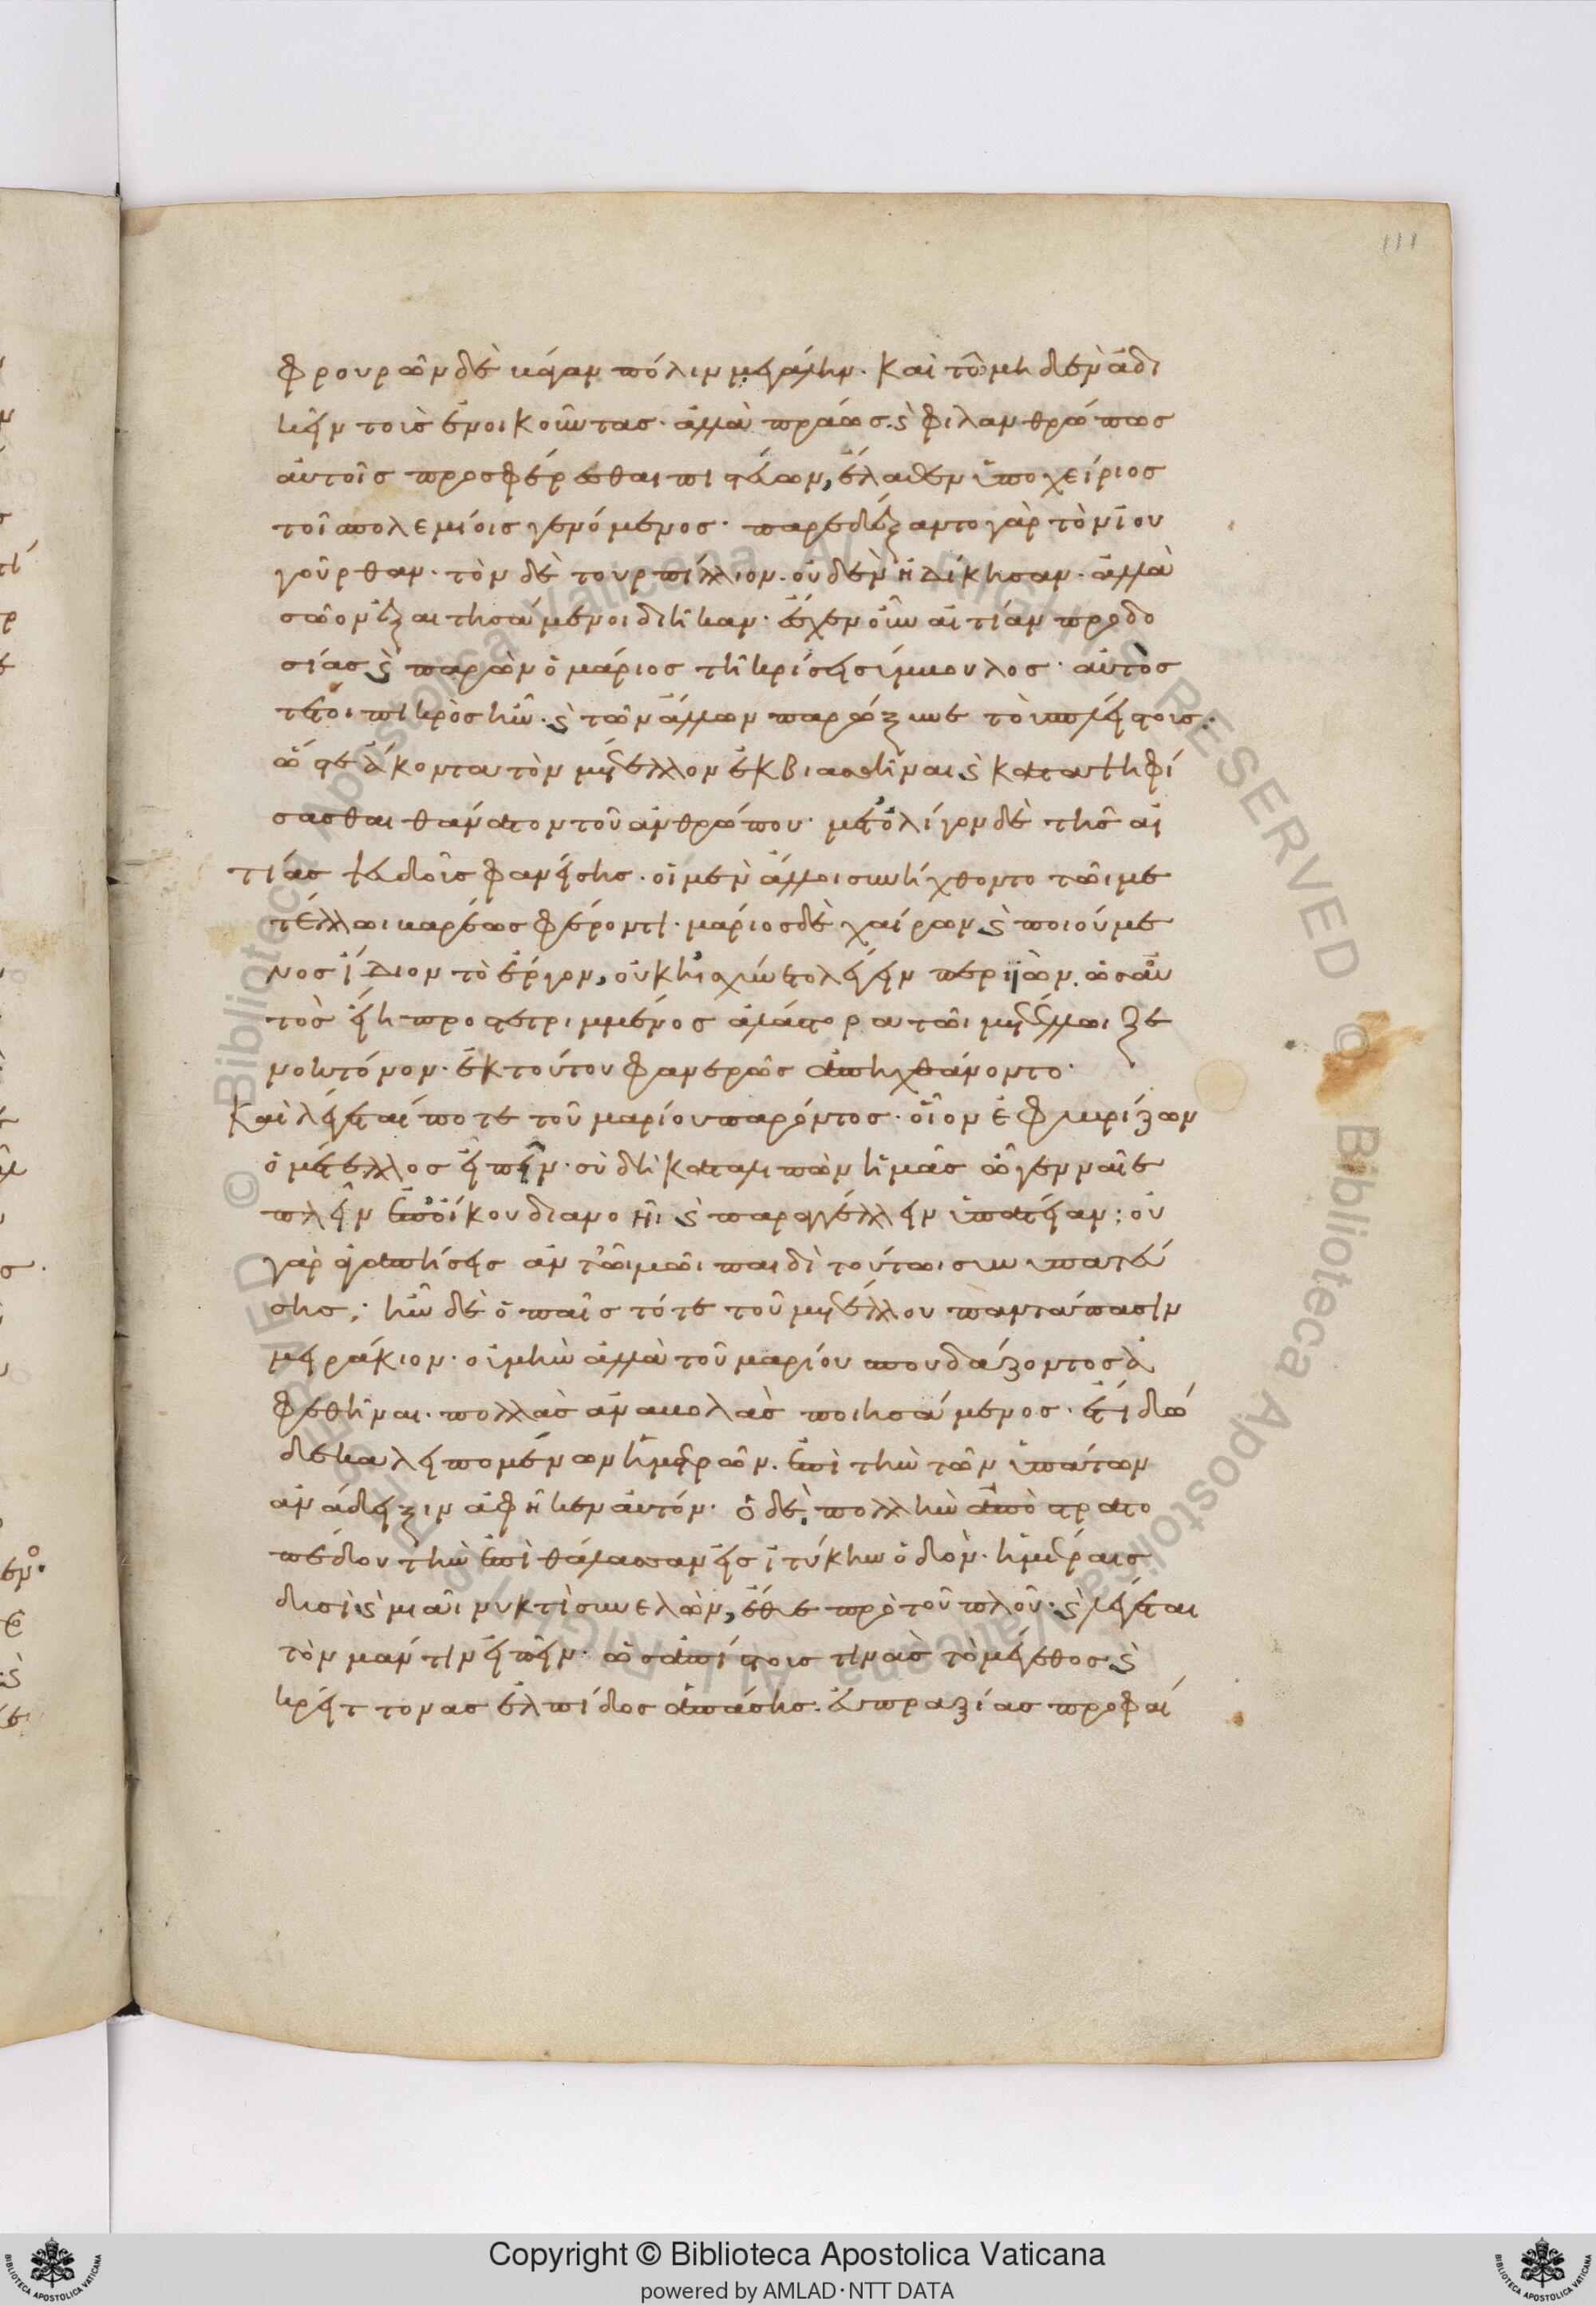 φρουρῶν δὲ βάγαν πόλιν μεγάλην. καὶ τῶ μηδὲν ἀδι
κεῖν τοὺς ἐνοικοῦντας. ἀλλὰ πράως ϗ φιλανθρώπως
αὐτοῖς προσφέρεσθαι πιστεύων, ἔλαθεν ὑποχείριος
τοῖς πολεμίοις γενόμενος. παρεδέξαντο γὰρ τὸν ἰου
γούρθαν. τὸν δὲ τουρπίλλιον οὐδὲν ἠδίκησαν. ἀλλὰ
σῶον ἐξαιτησάμενοι διῆκαν. ἔσχεν οὖν αἰτίαν προδο
σίας ϗ παρὼν ὁ μάριος τῆ κρίσει σύμβουλος. αὐτὸς
τέ οἱ πικρὸς ἦν. ϗ τῶν ἄλλων παρώξυνε τοὺς πλείστους.
ὥστε ἄκοντα τὸν μέτελλον ἐκβιασθῆναι ϗ καταψηφί
σασθαι θάνατον τοῦ ἀνθρώπου. μετ' ὀλίγον δὲ τῆς αἰ
τίας ψευδοῦς φανείσης. οἱ μὲν ἄλλοι συνήχθοντο τῶι με
τέλλωι βαρέως φέροντι. μάριος δὲ χαίρων ϗ ποιούμε
νος ἴδιον τὸ ἔργον, οὐκ ἠσχύνετο λέγειν περιϊὼν. ὡς αὐ
τὸς εἴη προστετριμμένος ἀλάστορα τῶι μετέλλωι ξε
νοκτόνον. ἐκ τούτου φανερῶς ἀπηχθάνοντο.
καὶ λέγεταί ποτε τοῦ μαρίου παρόντος. οἷον ἐφυβρίζων
ὁ μέτελλος εἰπεῖν. σὺ δὴ καταλιπὼν ἡμᾶς ὦ γενναῖε
πλεῖν ἐπ' οἴκου διανοῆι ϗ παραγγέλλειν ὑπατείαν; οὐ
γὰρ ἀγαπήσεις ἂν τῶι ἐμῶι παιδὶ τούτωι συνυπατεύ
σης; ἦν δὲ ὁ παῖς τότε τοῦ μετέλλου παντάπασιν
μειράκιον. οὐ μὴν ἀλλὰ τοῦ μαρίου σπουδάζοντος ἀ
φεθῆναι. πολλὰς ἀναβολὰς ποιησάμενος. ἔτι δώ
δεκα λειπομένων ἡμερῶν. ἐπὶ τὴν τῶν ὑπάτων
ἀνάδειξιν ἀφῆκεν αὐτόν. ὁ δὲ, πολλὴν ἀπὸ στρατο
πέδου τὴν ἐπὶ θάλασσαν εἰς ἰτύκην ὁδὸν. ἡμέραις
δυσὶ ϗ μιᾶι νυκτὶ συνελὼν, ἔθυε πρὸ τοῦ πλοῦ. ϗ λέγεται
τὸν μάντιν εἰπεῖν. ὡς ἀπίστους τινὰς τὸ μέγεθος ϗ
κρείττονας ἐλπίδος ἁπάσης. εὐπραξίας προφαί